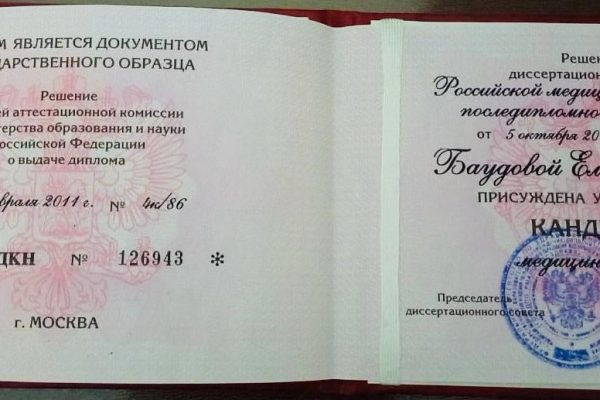 М ЯВЛЯЕТСЯ ДОКУМЕНТОМ
ДАРСТВЕННОГО ОБРАЗЦА
Решение
ей аттестационной комиссии
терства образования и науки
оссийской Федерации
о выдаче диплома
враля 2011 г. № 4к/86
ДКН № 126943 *
г. МОСКВА
Решен
диссертационн
Российской медици
последипломно
от 5 октября 20
Баудовой Ел
ПРИСУЖДЕНА У
КАНД
медицин
Председатель
диссертационного совета